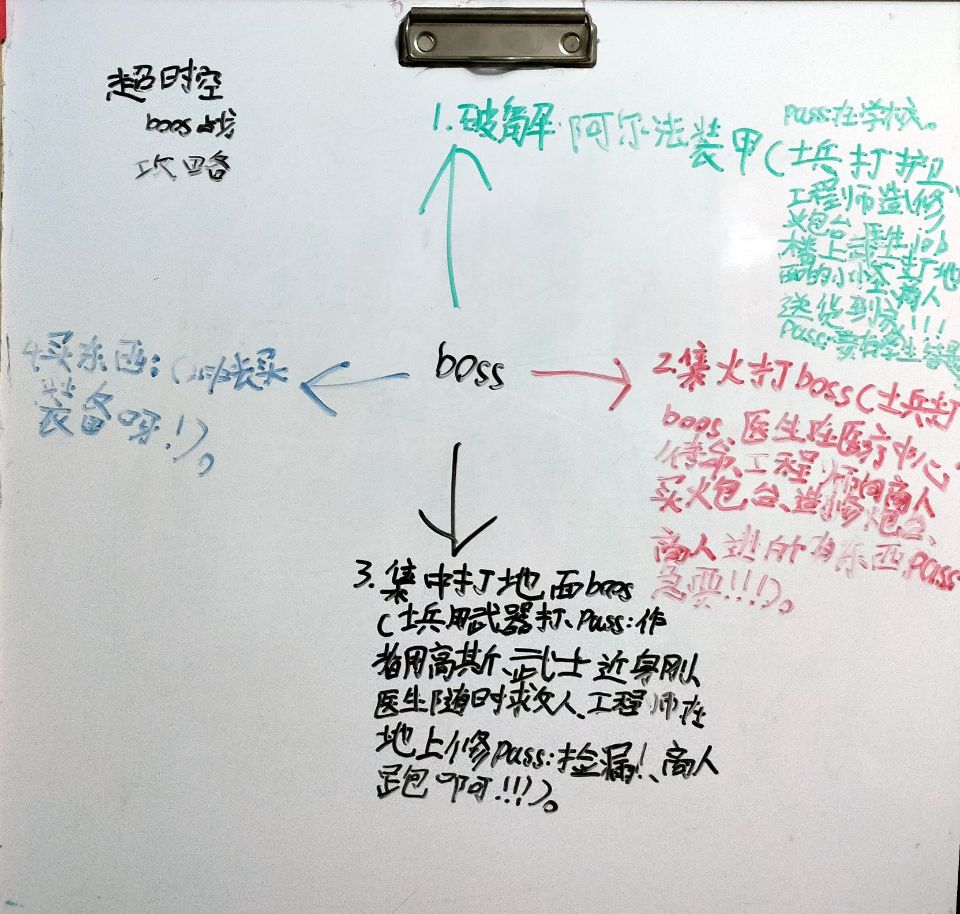 超时空
boos战
攻略
1.破解阿尔法装甲(士兵打护卫、
pass在学校。
工程师造修
炮台、医生job
楼上武士打地
面的小怪、商人
送货到家!!!
pass:要有学生
boss
2.集火打boss(士兵打
boos、医生在医疗中心
待命、工程师向商人
买火炮台、造修炮台、
商人进所有东西pass
急要!!!)。
3.集中打地面boos
(士兵用武器打、pass:作
者用高斯、武士近身刚、
医生随时救人、工程师在
地上修pass:捡漏!、商人
跑啊!!!)。
4.买东西:(快去买
装备呀!)。